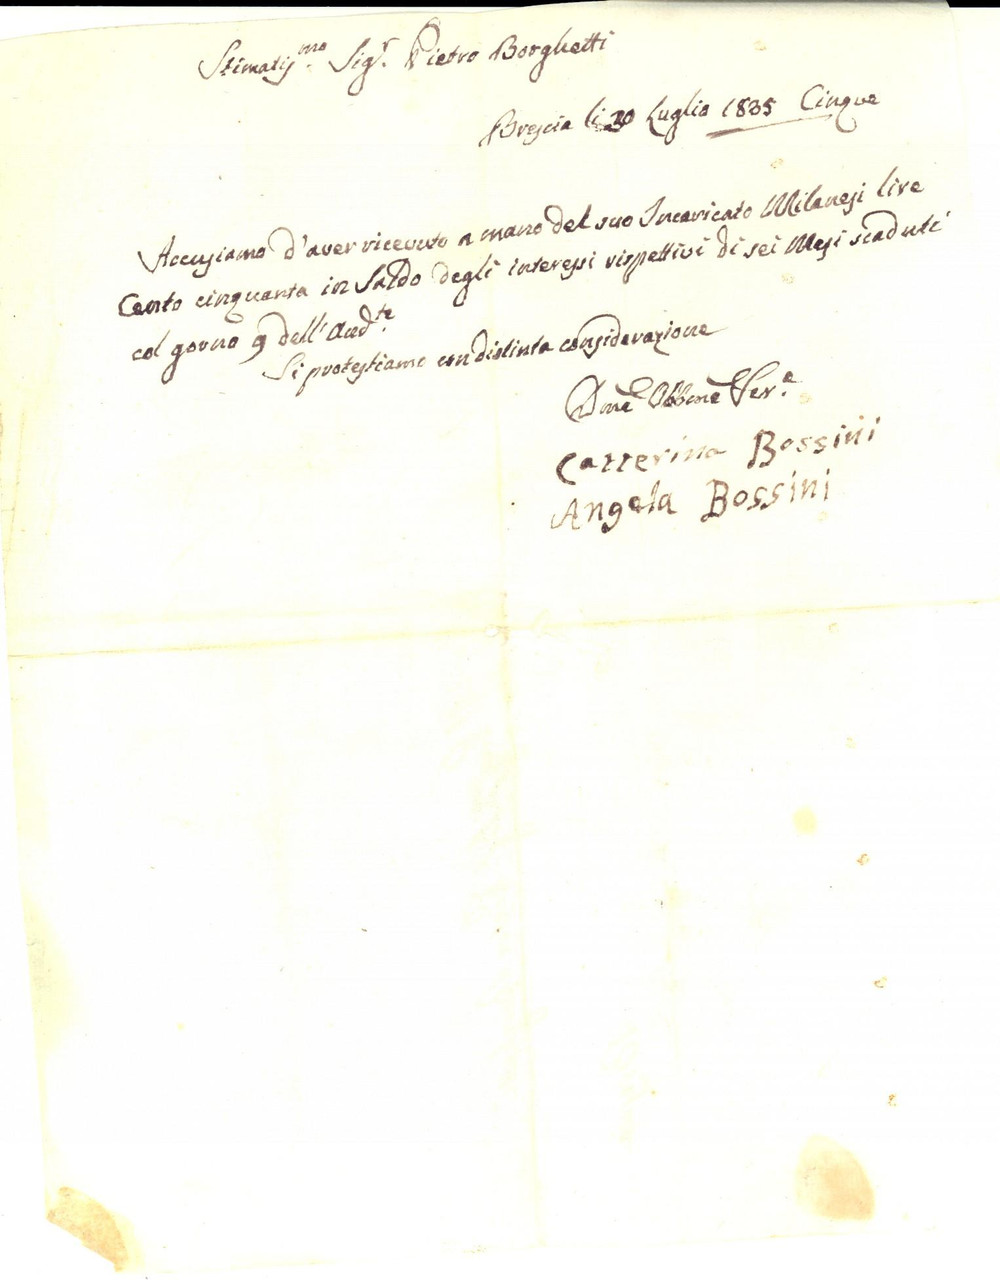 Stimatis.mo Sig.r Pietro Borghetti
Brescia li 30 Luglio 1835 Cinque
Accusiamo d'aver ricevuto a mano del suo Incaricato Milanesi lire
Cento cinquanta in Saldo degli interessi rispettivi di sei Mesi scaduti
col gorno 9 dell'And.te
Si protestiamo con distinta considerazione
Dme Obbme Ser.e
Catterina Bossini
Angela Bossini